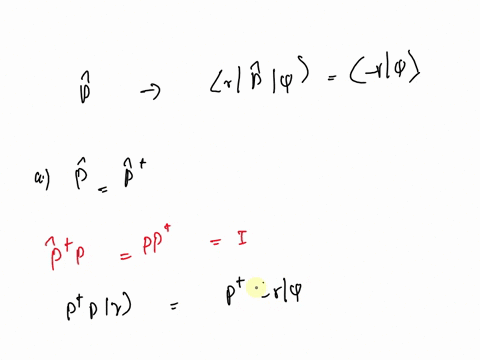 p̂ → ⟨r|p̂|φ⟩ = ⟨-r|φ⟩
a) p̂ = p̂†
p̂†p = pp† = I
p†p|r⟩ = p† -r|φ